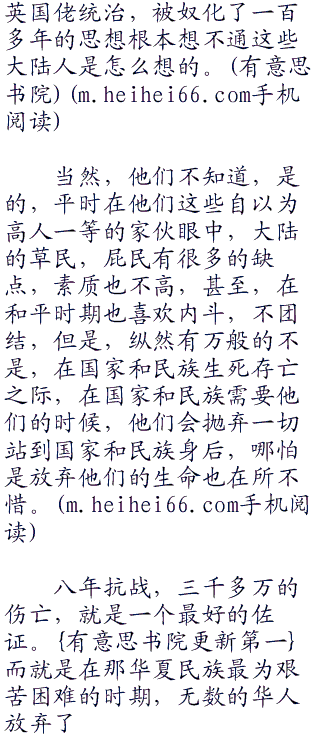 英国佬统治，被奴化了一百
多年的思想根本想不通这些
大陆人是怎么想的。(有意思
书院)(m.heihei66.com手机
阅读)
当然，他们不知道，是
的，平时在他们这些自以为
高人一等的家伙眼中，大陆
的草民，屁民有很多的缺
点，素质也不高，甚至，在
和平时期也喜欢内斗，不团
结，但是，纵然有万般的不
是，在国家和民族生死存亡
之际，在国家和民族需要他
们的时候，他们会抛弃一切
站到国家和民族身后，哪怕
是放弃他们的生命也在所不
惜。(m.heihei66.com手机阅
读)
八年抗战，三千多万的
伤亡，就是一个最好的佐
证。{有意思书院更新第一}
而就是在那华夏民族最为艰
苦困难的时期，无数的华人
放弃了